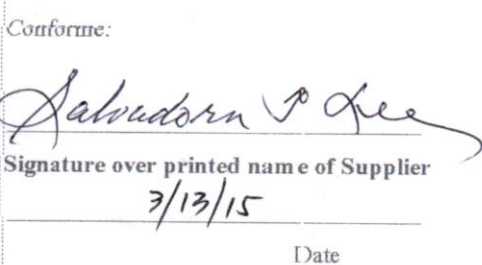 Conforme:
Salvadora P Lee
Signature over printed name of Supplier
3/13/15
Date